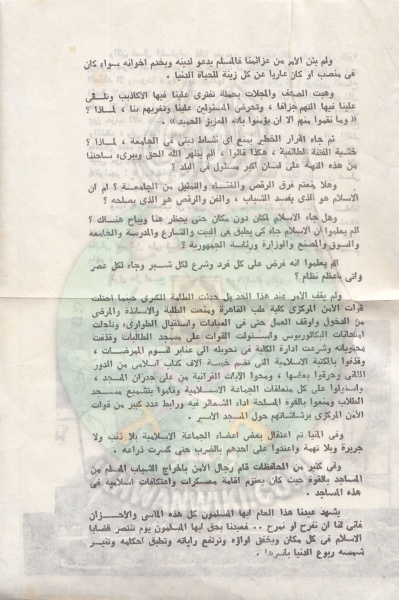 ولم يثن الأمر من عزائمنا فالمسلم يدعو لدينه ويخدم اخوانه سواء كان
فى منصب او كان عاريا عن كل زينة للحياة الدنيا .
وهبت الصحف والمجلات بحملة تفترى علينا فيها الاكاذيب وتلقى
علينا فيها التهم جزافا ، وتحرض المسئولين علينا وتغريهم بنا ، لماذا ؟
« وما نقموا منهم الا ان يؤمنوا بالله العزيز الحميد » .
ثم جاء القرار الخطير بمنع اى نشاط دينى فى الجامعة ، لماذا ؟
خشية الفتنة الطائفية ، هكذا قالوا ، الم يظهر الله الحق ويبرىء ساحتنا
من هذه التهمة على لسان اكبر مسئول فى البلد ؟
وهلا منعتم فرق الرقص والغناء والتمثيل من الجامعة ؟ ام ان
الاسلام هو الذى يفسد الشباب ، والفن والرقص هو الذى يصلحه ؟
وهل جاء الاسلام لمكان دون مكان حتى يحظر هنا ويباح هناك ؟
الم يعلموا ان الاسلام جاء كى يطبق فى البيت والشارع والمدرسة والجامعة
والسوق والمصنع والوزارة ورئاسة الجمهورية ؟
الم يعلموا انه فرض على كل فرد وشرع لكل شبر وجاء لكل عصر
واتى بأعظم نظام ؟
ولم يقف الأمر عند هذا الحد بل حدثت الطامة الكبرى حينما احتلت
قوات الأمن المركزى كلية طب القاهرة ومنعت الطلبة والاساتذة والمرضى
من الدخول واوقف العمل حتى فى العيادات واستقبال الطوارىء وتأجلت
امتحانات البكالوريوس واستولت القوات على مسجد الطالبات وقذفت
محتوياته وشرعت ادارة الكلية فى تحويله الى عنابر لنوم الممرضات ،
وقذفوا بالمكتبة الاسلامية التى تضم خمسة آلاف كتاب اسلامى من الدور
الثانى وحرقوا بعضها ، ومحوا الآيات القرآنية من على جدران المسجد ،
واستولوا على كل متعلقات الجماعة الاسلامية وقاموا بتشميع مسجد
الطلاب ومنعوا بالقوة المسلحة اداء الشعائر فيه ورابط عدد كبير من قوات
الأمن المركزى برشاشاتهم حول المسجد الأسير .
وفى المنيا تم اعتقال بعض أعضاء الجماعة الاسلامية بلا ذنب ولا
جريرة وبلا تهمة واعتدوا على احدهم بالضرب حتى كسرت ذراعه .
وفى كثير من المحافظات قام رجال الأمن باخراج الشباب المسلم من
المساجد بالقوة حيث كان يعتزم اقامة معسكرات واعتكافات اسلامية فى
هذه المساجد .
يشهد عيدنا هذا العام ايها المسلمون كل هذه المآسى والأحزان
فأنى لنا ان نفرح او نمرح .. فعيدنا بحق ايها المسلمون يوم تنتصر قضايا
الاسلام فى كل مكان ويخفق لواؤه وترتفع راياته وتطبق احكامه وتنير
شمسه ربوع الدنيا بأسرها .